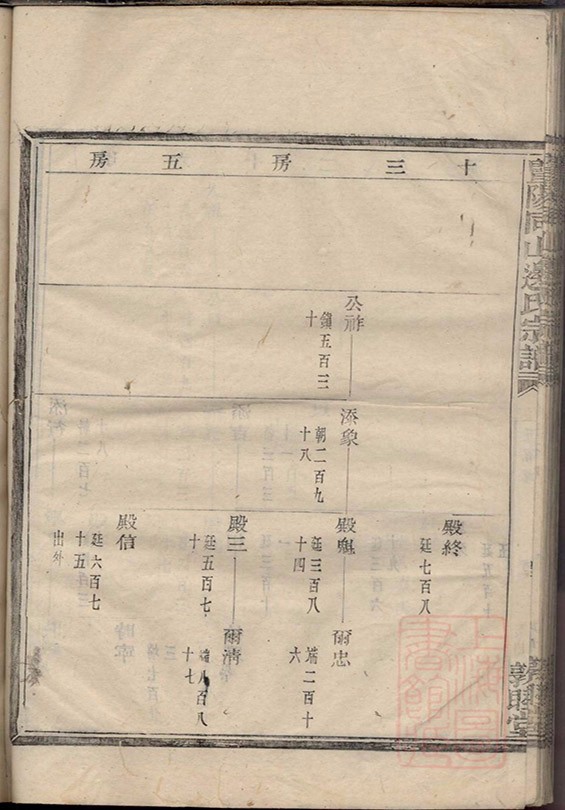 暨陽同山邊氏宗譜
敦睦堂
十三房五房
公祚
鎮五百三
十
添象
朝二百九
十八
殿終
廷七百八
殿魁
廷三百八
十四
爾忠
端二百十
六
殿三
廷五百七
十
爾清
端八百八
十七
殿信
廷六百七
十五
出外